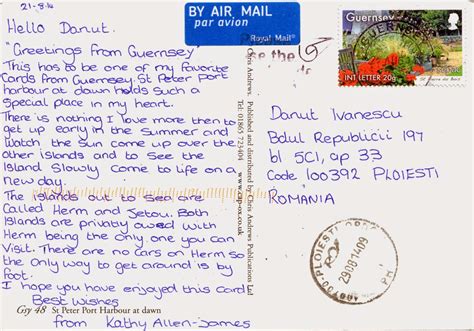 21-8-14
Hello Danut.
"Greetings from Guernsey"
This has to be one of my favorite
Cards from Guernsey. St Peter Port
harbour at dawn holds such a
Special place in my heart.
There is nothing I love more then to
get up early in the Summer and
Watch the Sun come up over the
other islands and to See the
Island Slowly come to life on a
new day.
The islands out to Sea are
Called Herm and Jetou. Both
Islands are privatly owed with
Herm being the only one you can
Visit. There are no cars on Herm so
the Only way to get around is by
foot.
I hope you have enjoyed this Card
Best Wishes
from Kathy Allen-James
Gsy 48 St Peter Port Harbour at dawn
Chris Andrews Published and distributed by Chris Andrews Publications Ltd
Tel: 01865 723404 www.cap-ox.co.uk
BY AIR MAIL
par avion
Royal Mail
see the
Guernsey
INT LETTER 20g
Danut Ivanescu
Bdul Republicii 197
bl 5C1, ap 33
Code 100392 PLOIESTI
ROMANIA
PLOIESTI
29081409